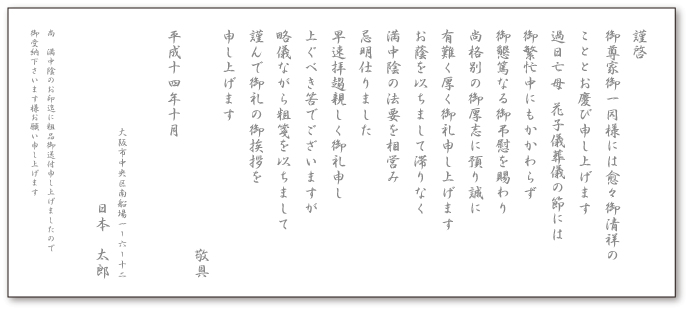 謹啓
御尊家御一同様には愈々御清祥の
こととお慶び申し上げます
過日亡母　花子儀葬儀の節には
御繁忙中にもかかわらず
御懇篤なる御弔慰を賜わり
尚格別の御厚志に預り誠に
有難く厚く御礼申し上げます
お蔭を以ちまして滞りなく
満中陰の法要を相営み
忌明仕りました
早速拝趨親しく御礼申し
上ぐべき筈でございますが
略儀ながら粗箋を以ちまして
謹んで御礼の御挨拶を
申し上げます
敬具
平成十四年十月
大阪市中央区南船場一ー六ー十二
日本　太郎
尚　満中陰のお印迄に粗品御送付申し上げましたので
御受納下さいます様お願い申し上げます